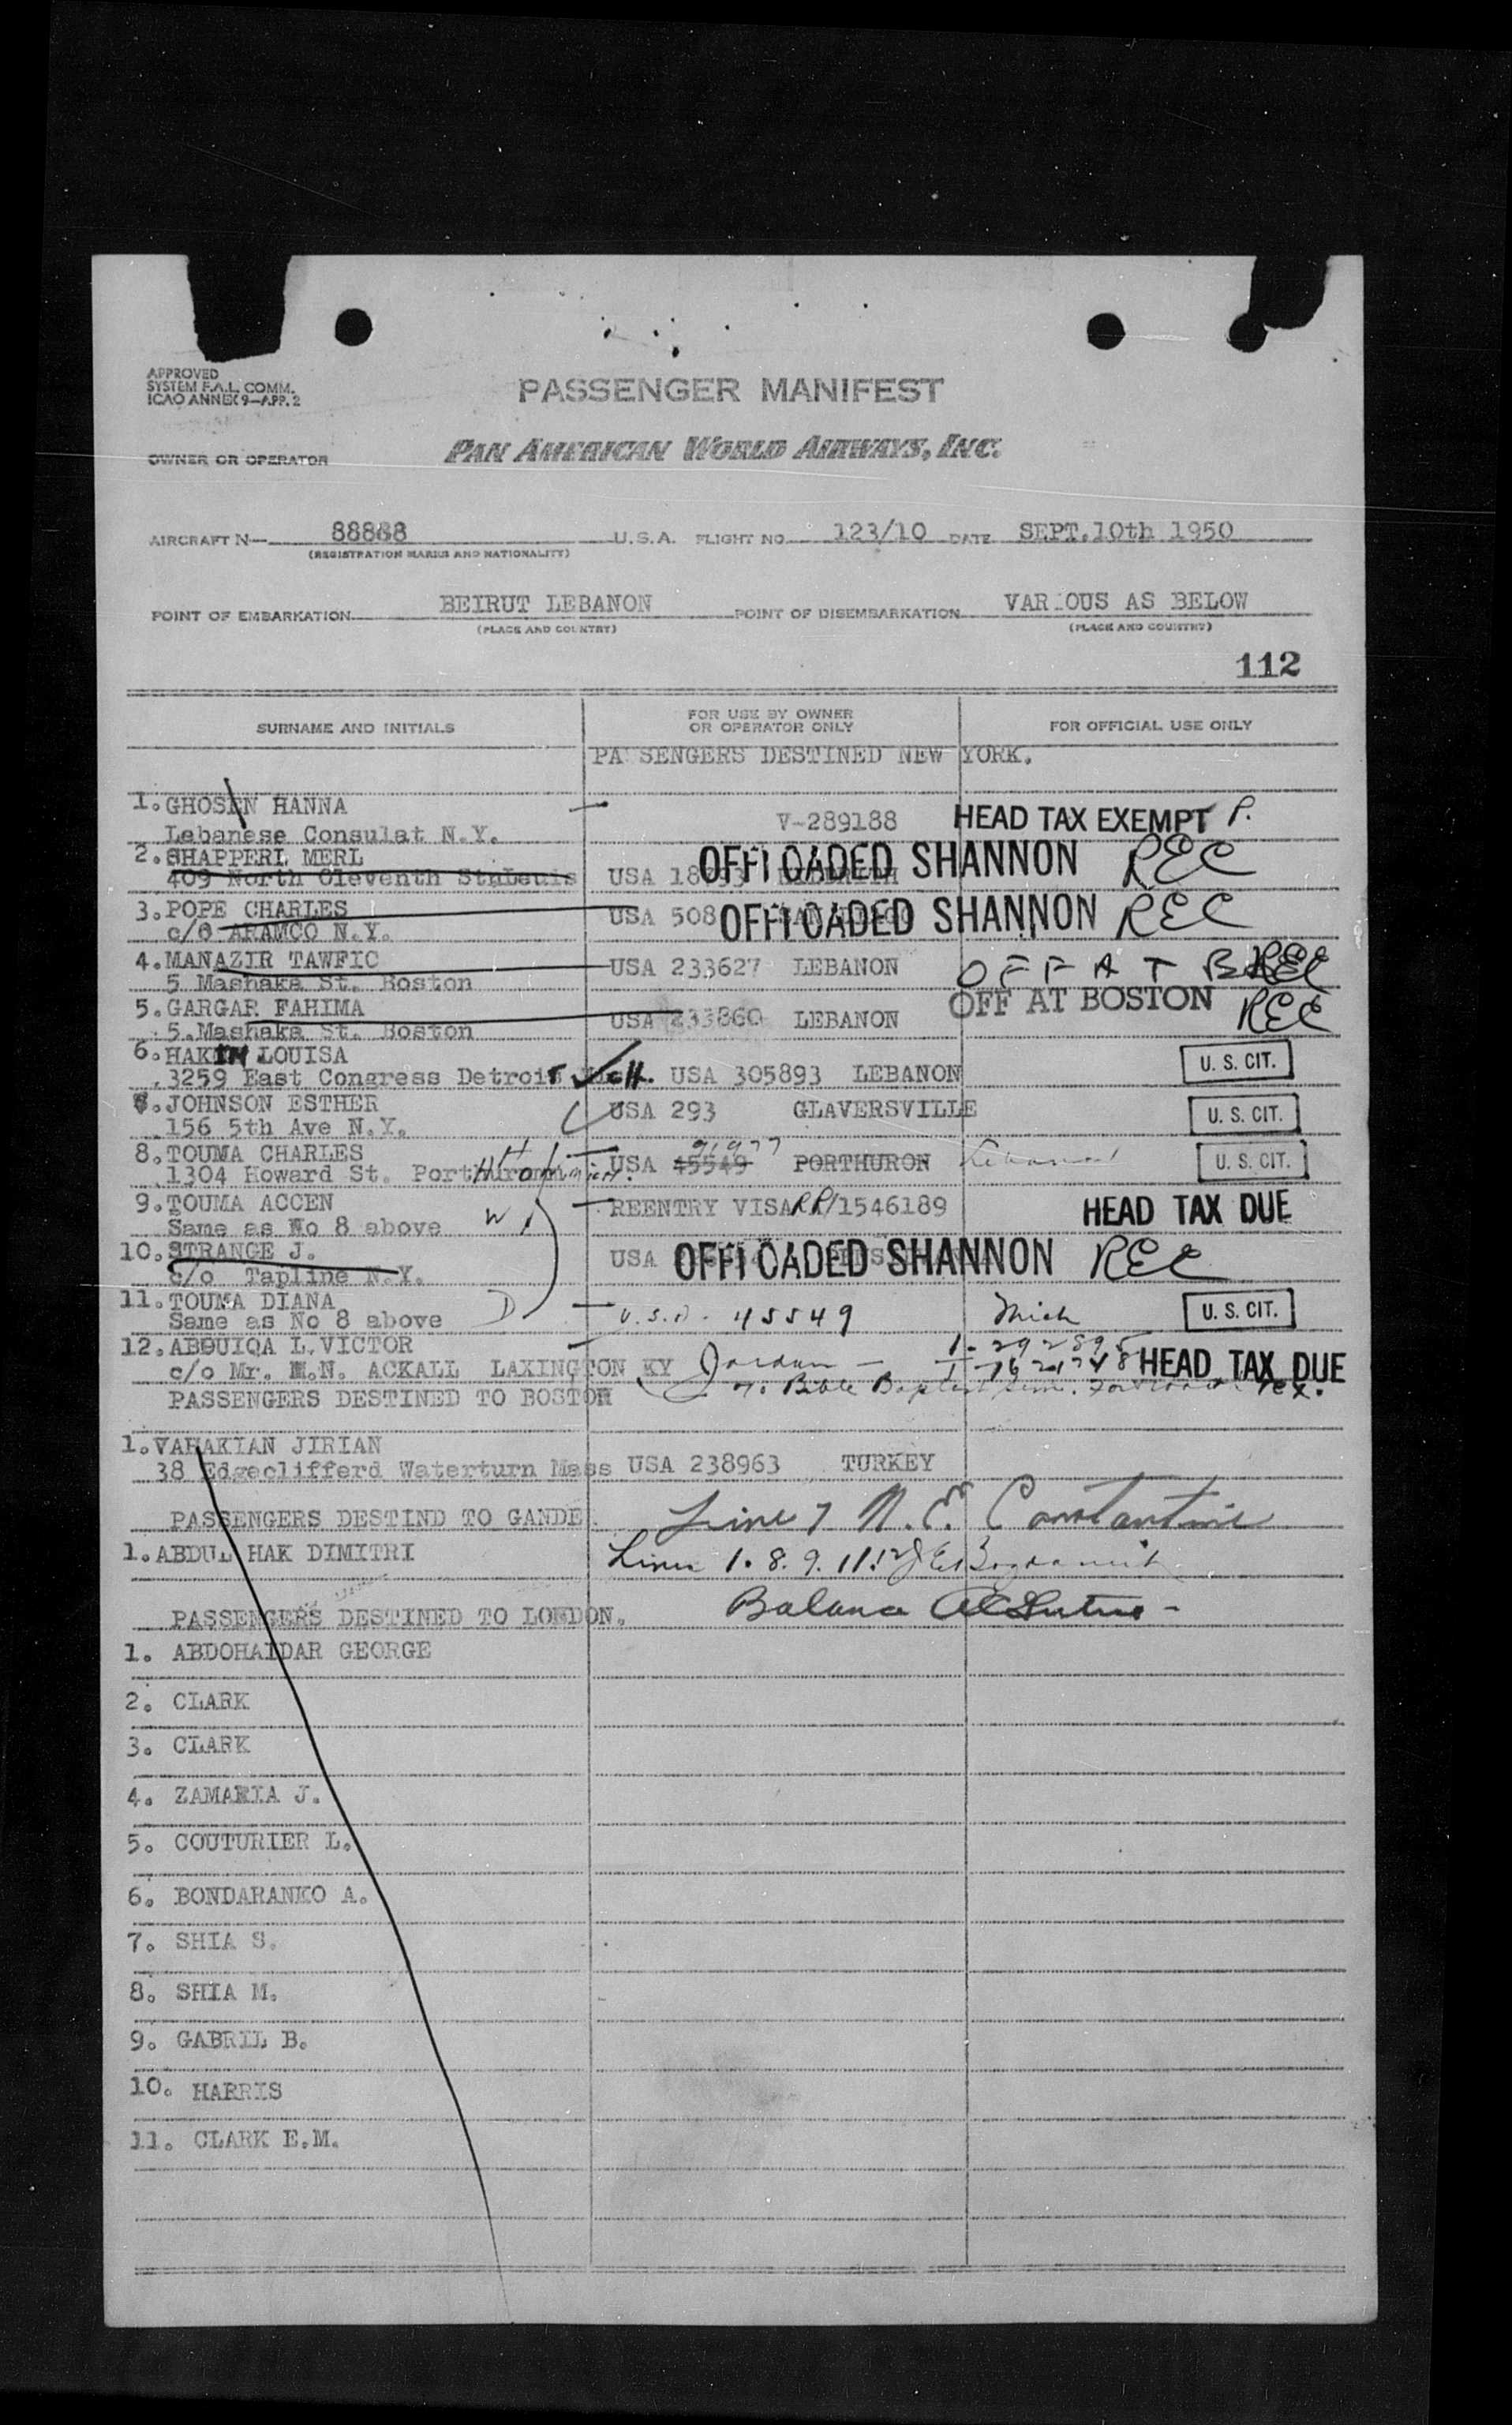 APPROVED
SYSTEM F.A.L. COMM.
ICAO ANNEX 9—APP. 2
PASSENGER MANIFEST
OWNER OR OPERATOR PAN AMERICAN WORLD AIRWAYS, INC.
AIRCRAFT N— 88888 U.S.A. FLIGHT NO. 123/10 DATE SEPT.10th 1950
(REGISTRATION MARKS AND NATIONALITY)
POINT OF EMBARKATION BEIRUT LEBANON POINT OF DISEMBARKATION VARIOUS AS BELOW
(PLACE AND COUNTRY) (PLACE AND COUNTRY)
112
SURNAME AND INITIALS FOR USE BY OWNER OR OPERATOR ONLY FOR OFFICIAL USE ONLY
PASSENGERS DESTINED NEW YORK.
1. GHOSEN HANNA V-289188 HEAD TAX EXEMPT P.
Lebanese Consulat N.Y.
2. SHAPPERL MERL OFFLOADED SHANNON REC
409 North Cleventh StnLouis USA
3. POPE CHARLES USA 508 OFFLOADED SHANNON REC
c/o ARAMCO N.Y.
4. MANAZIR TAWFIC USA 233627 LEBANON OFF AT B REC
5 Mashaka St. Boston
5. GARGAR FAHIMA USA 233860 LEBANON OFF AT BOSTON REC
5.Mashaka St. Boston
6. HAKIM LOUISA U. S. CIT.
3259 East Congress Detroit Mich. USA 305893 LEBANON
7. JOHNSON ESTHER USA 293 GLAVERSVILLE U. S. CIT.
156 5th Ave N.Y.
8. TOUMA CHARLES H USA 45549 91977 PORTHURON Lebanon U. S. CIT.
1304 Howard St. Porthuron
9. TOUMA ACCEN W REENTRY VISA RP/1546189 HEAD TAX DUE
Same as No 8 above
10. STRANGE J. USA OFFLOADED SHANNON REC
c/o Tapline N.Y.
11. TOUMA DIANA D U.S.A. 45549 Mich U. S. CIT.
Same as No 8 above
12. ABOUIQA L.VICTOR
c/o Mr. M.N. ACKALL LAXINGTON KY Jordan — HEAD TAX DUE
% Bible Baptist Sem. Tex.
PASSENGERS DESTINED TO BOSTON
1. VAHAKIAN JIRIAN
38 Edgeclifferd Waterturn Mass USA 238963 TURKEY
PASSENGERS DESTIND TO GANDE. Line 7 N.E. Constantine
1. ABDUL HAK DIMITRI Lines 1. 8. 9. 11. 12
PASSENGERS DESTINED TO LONDON. Balance
1. ABDOHAIDAR GEORGE
2. CLARK
3. CLARK
4. ZAMARIA J.
5. COUTURIER L.
6. BONDARANKO A.
7. SHIA S.
8. SHIA M.
9. GABRIL B.
10. HARRIS
11. CLARK E.M.